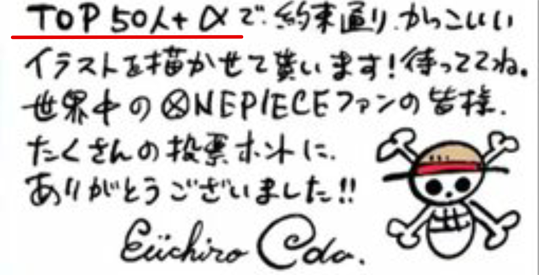 TOP50人+αで約束通り、かっこいい
イラストを描かせて貰います!待っててね。
世界中のONEPIECEファンの皆様、
たくさんの投票ホントに、
ありがとうございました!!
Eiichiro Oda.